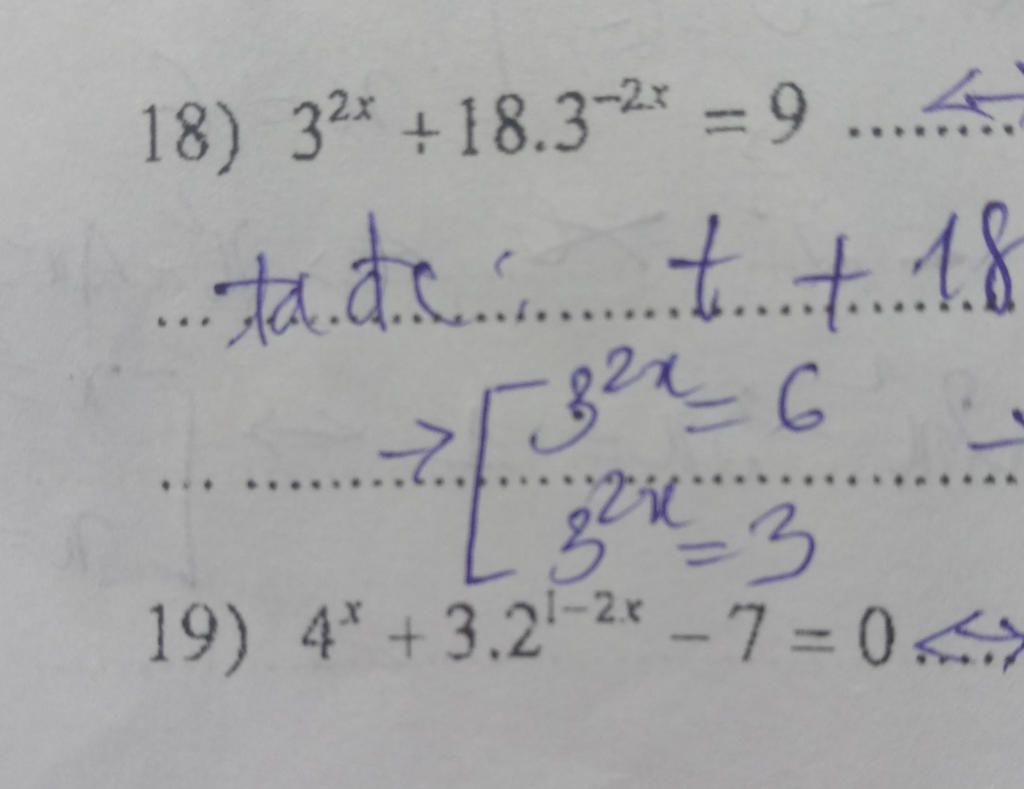 18) 3^{2x} + 18.3^{-2x} = 9 ........ ↔
... ta đc : t + 18
... → [ 3^{2x} = 6 →
3^{2x} = 3
19) 4^x + 3.2^{1-2x} - 7 = 0 ..... ↔